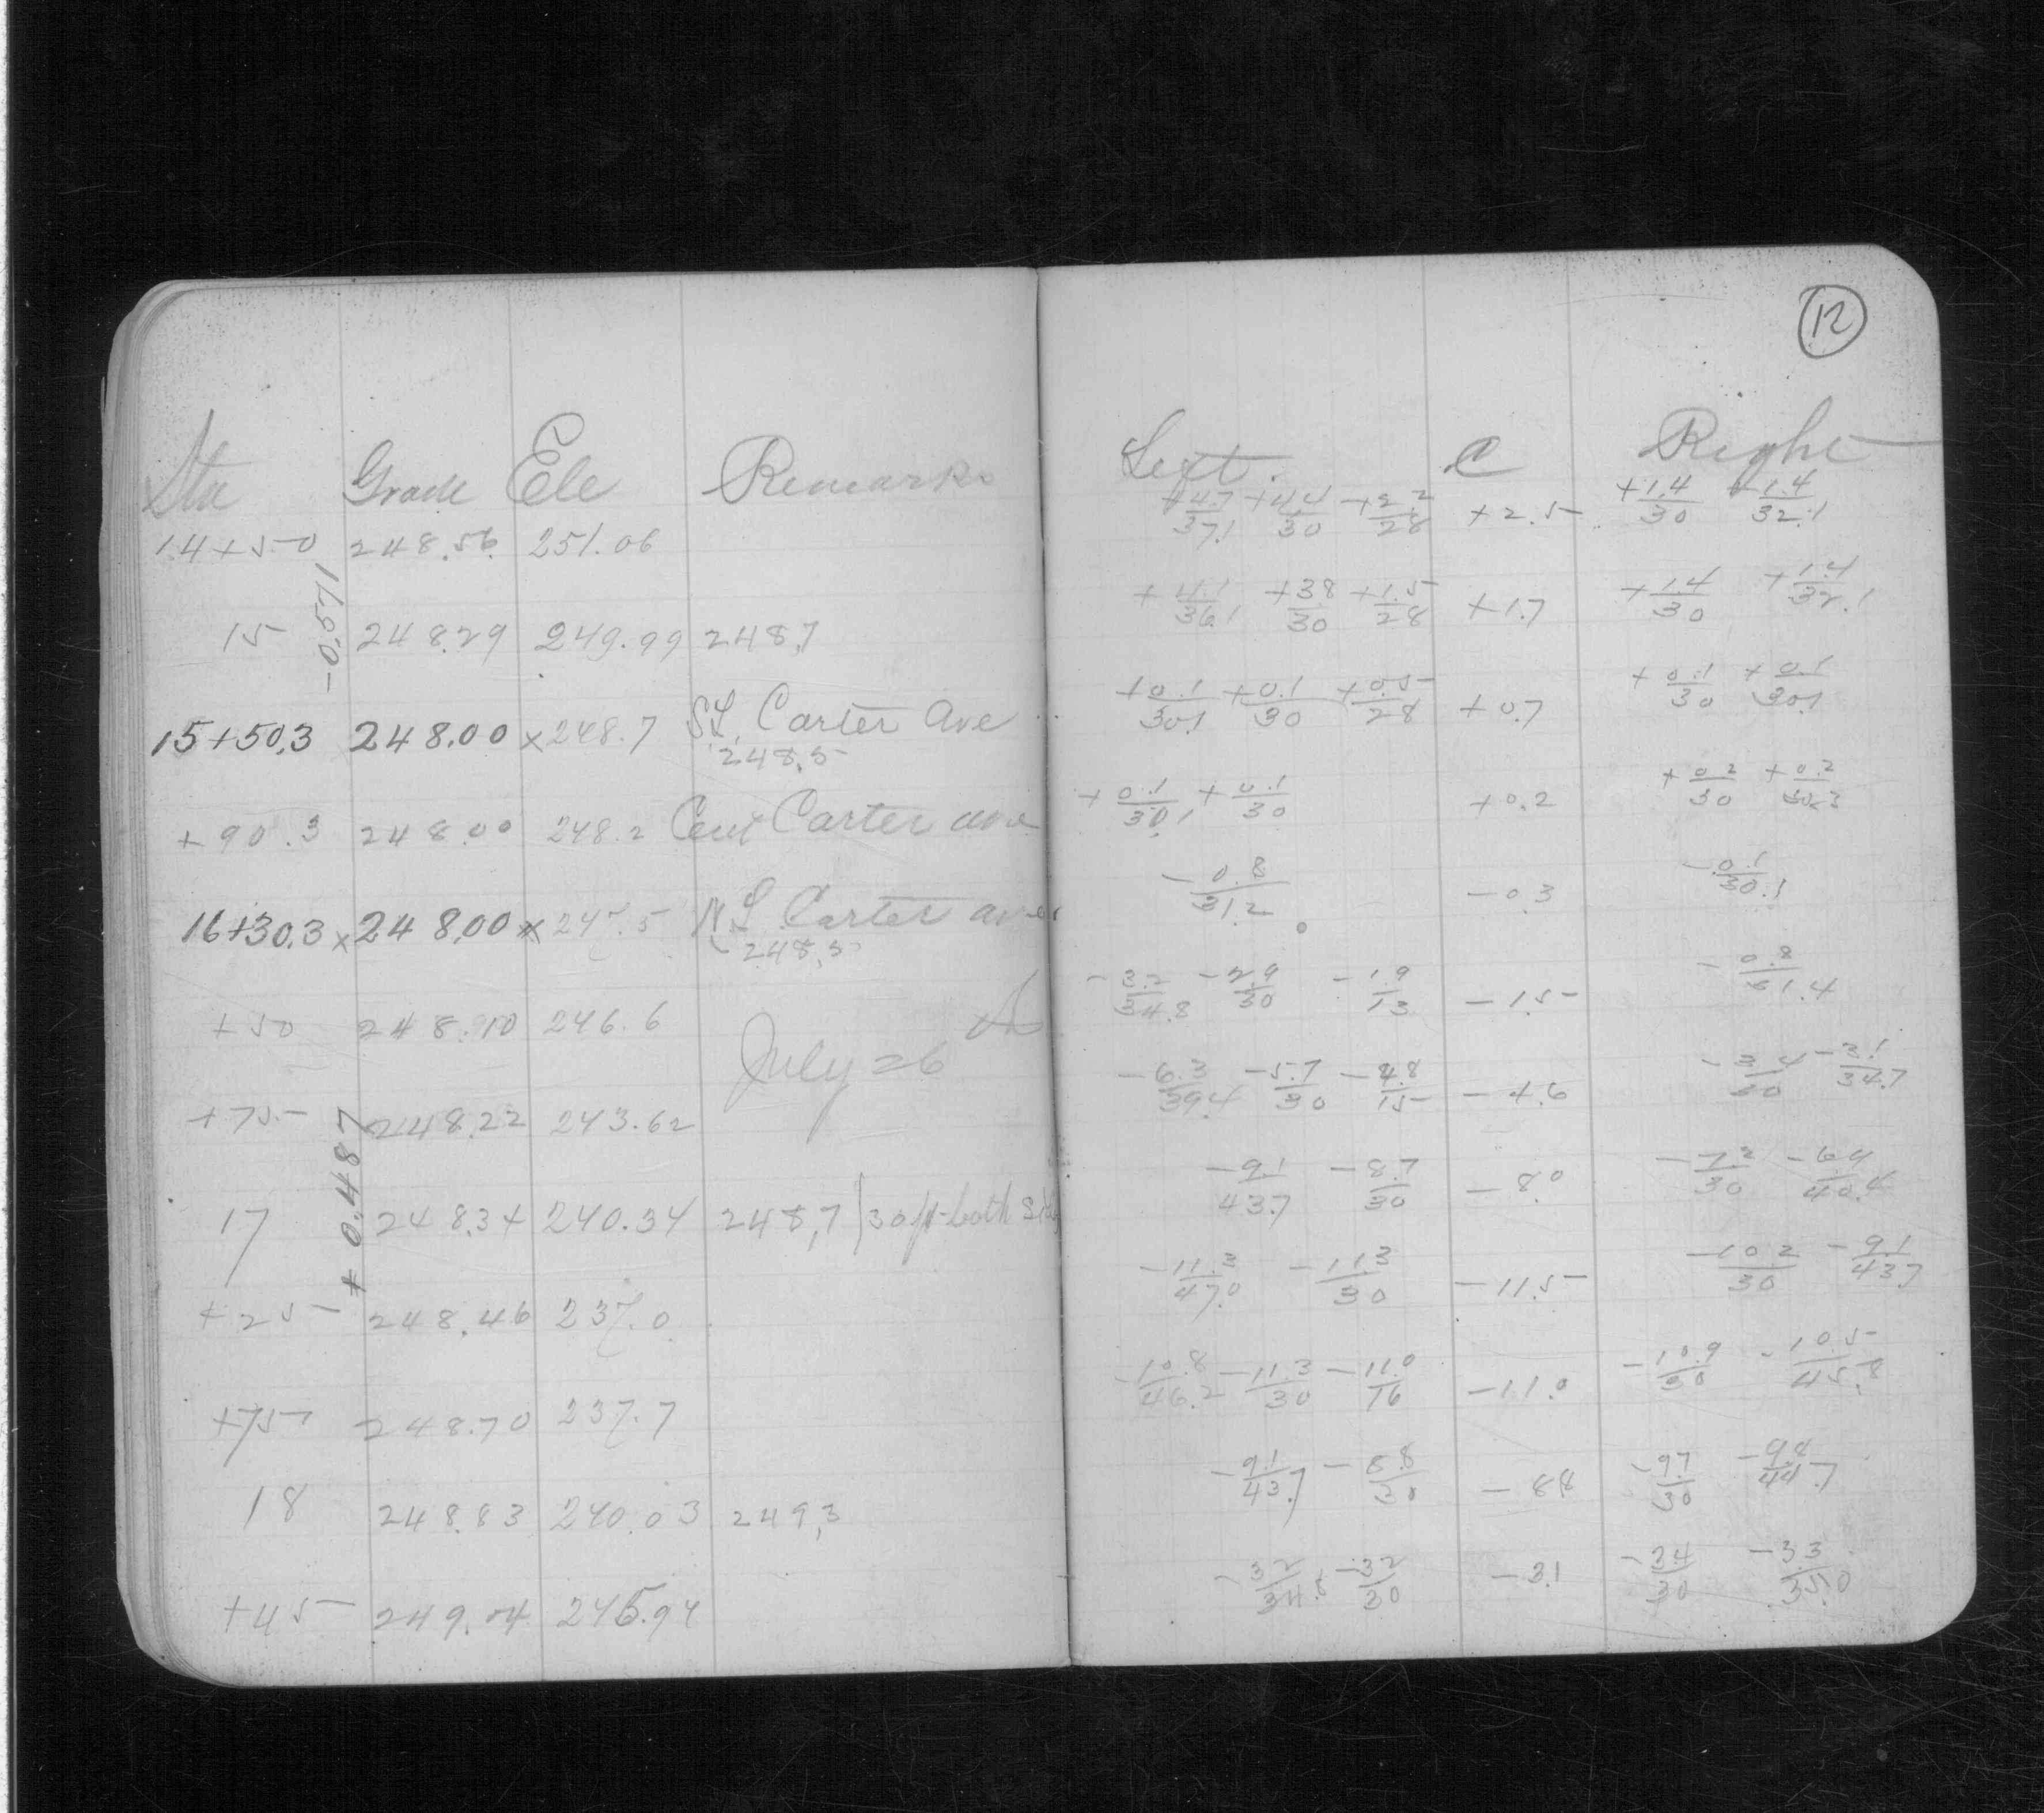 12
Sta Grade Ele Remarks
14+50 248.56 251.06
-0.571
15 248.29 249.99 248.7
15+50.3 248.00 x 248.7 SL. Carter Ave
248.5
+90.3 248.00 248.2 Cent Carter ave
16+30.3 x 248.00 x 247.5 NL Carter ave
248.5
+50 248.10 246.6
July 26
+75 248.22 243.62
+0.487
17 248.34 240.34 248.7 30 ft both
+25 248.46 237.0
+75 248.70 237.7
18 248.83 240.03 249.3
+45 249.04 245.94
Left. C Right
+4.7/37.1 +4.4/30 +2.2/28 +2.5 +1.4/30 +1.4/32.1
+4.1/36.1 +3.8/30 +1.5/28 +1.7 +1.4/30 +1.4/32.1
+0.1/30.1 +0.1/30 +0.5/28 +0.7 +0.1/30 +0.1/30.1
+0.1/30.1 +0.1/30 +0.2 +0.2/30 +0.2/30.3
-0.8/31.2 -0.3 -0.1/30.1
-3.2/34.8 -2.9/30 -1.9/13 -1.5 -0.8/31.4
-6.3/39.4 -5.7/30 -4.8/15 -4.6 -3.4/30 -3.1/34.7
-9.1/43.7 -8.7/30 -8.0 -7.2/30 -6.9/40.4
-11.3/47.0 -11.3/30 -11.5 -10.2/30 -9.1/43.7
-10.8/46.2 -11.3/30 -11.0/16 -11.0 -10.9/30 -10.5/45.8
-9.1/43.7 -8.8/30 -8.8 -9.7/30 -9.4/44.7
-3.2/34.8 -3.2/30 -3.1 -3.4/30 -3.3/35.0